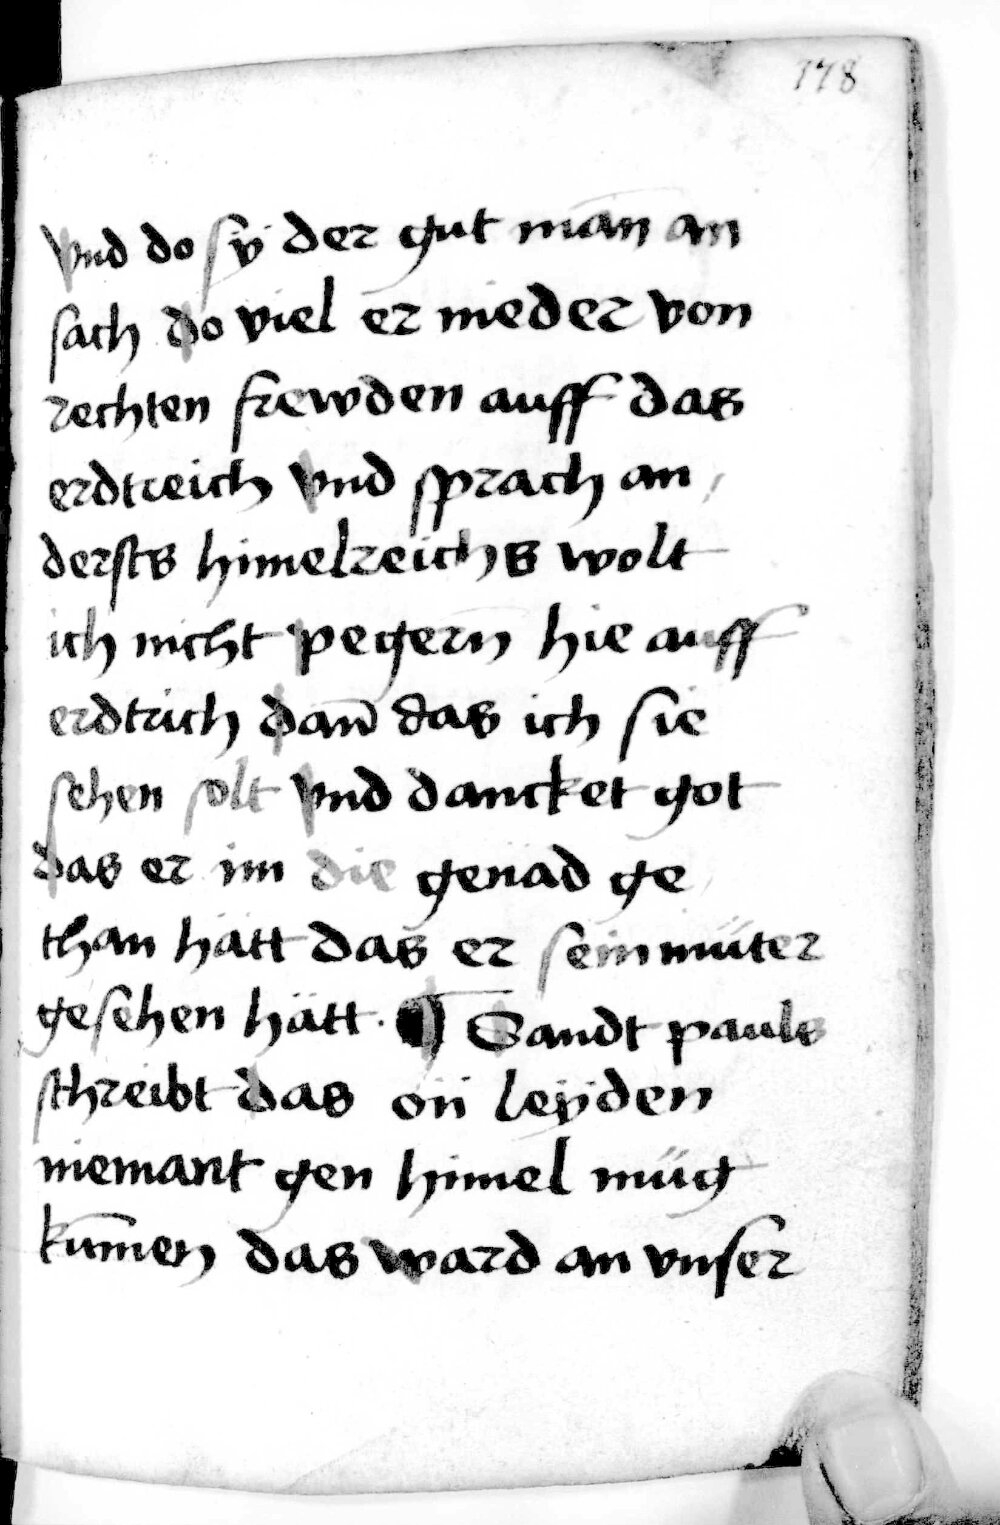 178
vnd do sÿ der gut mān an
sach do viel er nieder von
rechten frewden auff das
erdtreich vnd sprach an
dersts himelreichs wolt
ich nicht pegern̄ hie auff
erdtrich dan̄ das ich sie
sehen solt vnd dancket got
das er im die genad ge
than hätt das er sein müter
gesehen hätt · ¶ Sandt pauls
schreibt das on leÿden
niemant gen himel müg
kum̄en das ward an vnser